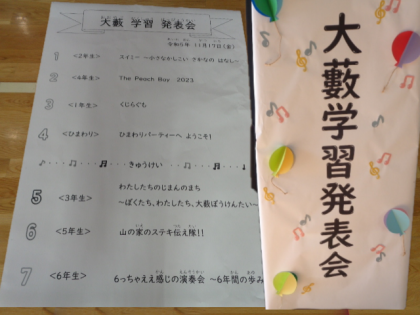 大藪 学習 発表会
令和5年 11月17日(金)
1 <2年生> スイミー ～小さなかしこい さかなの はなし～
2 <4年生> The Peach Boy 2023
3 <1年生> くじらぐも
4 <ひまわり> ひまわりパーティーへ ようこそ!
♪・・・♫・・・♬・・・きゅうけい・・・♫・・・♬・・・♩
5 <3年生> わたしたちのじまんのまち
～ぼくたち、わたしたち、大藪ぼうけんたい～
6 <5年生> 山の家のステキ伝え隊!!
7 <6年生> 6っちゃええ感じの演奏会 ～6年間の歩み
大藪学習発表会